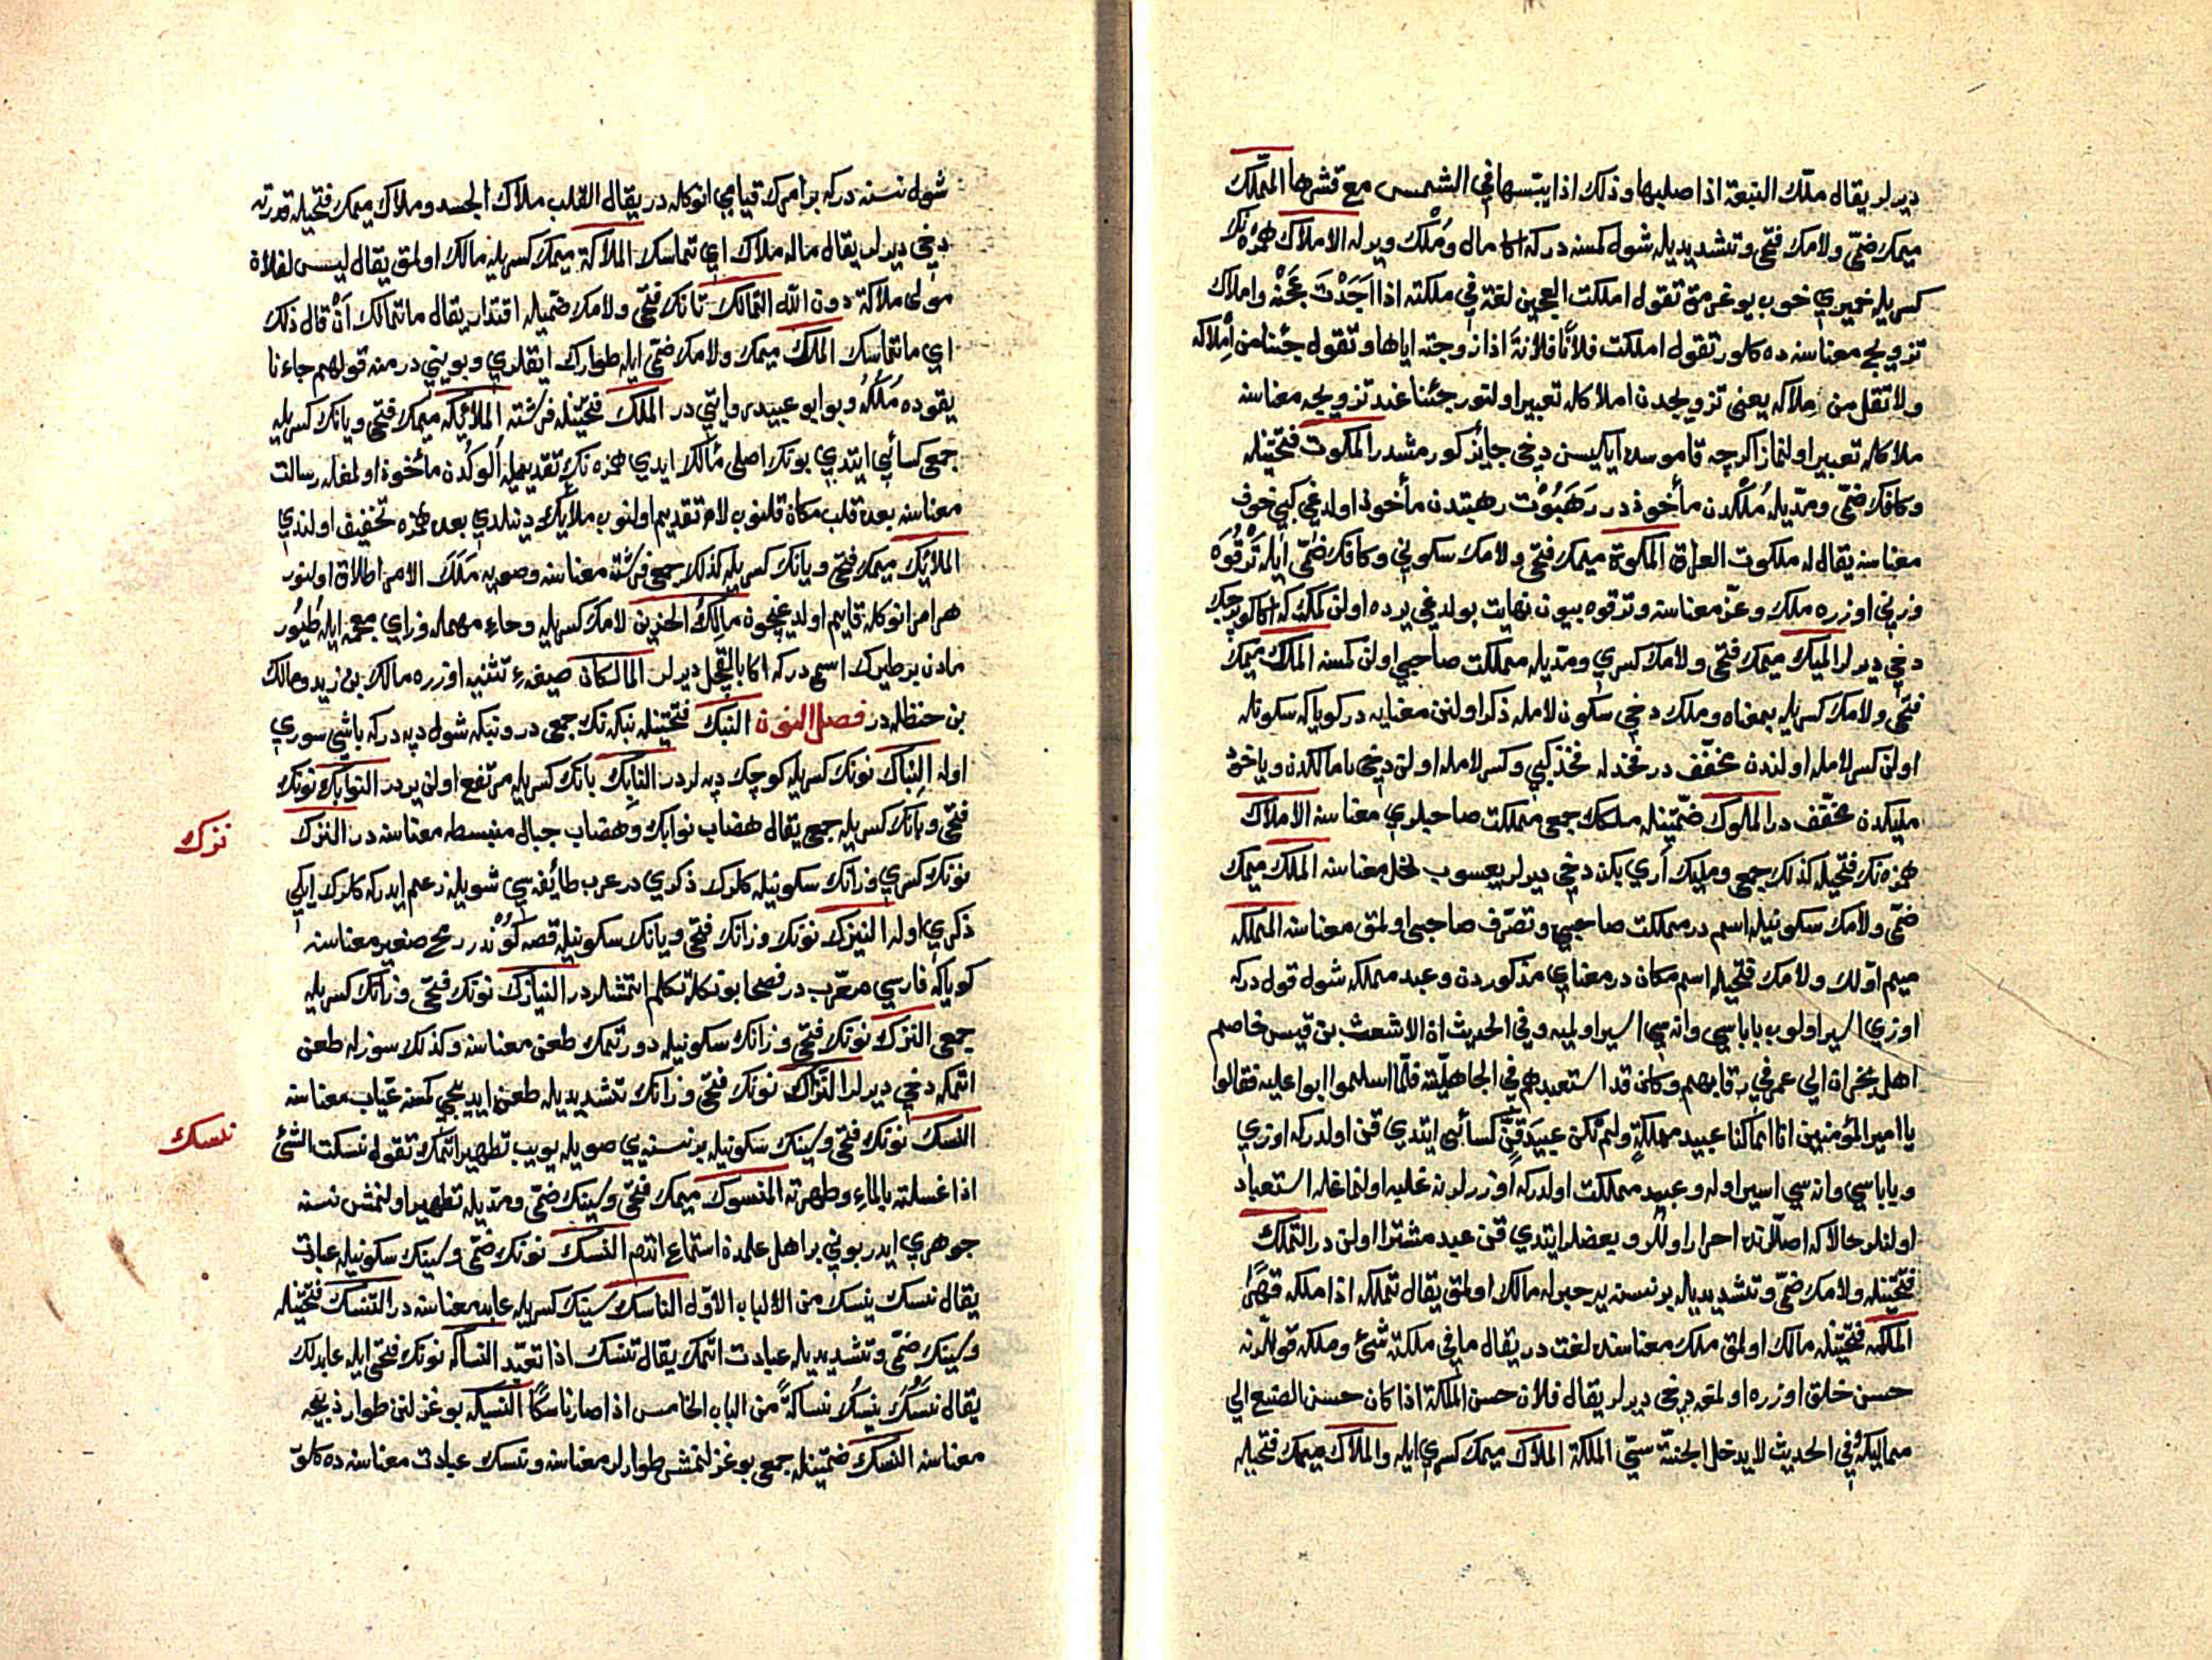 ديرلر يقال ملّك النبعة اذا صلبها وذلك اذا يبّسها في الشمس مع قشرها المملّك
ميمك ضمّى ولامك فتحى وتشديديله شول كمسنه دركه اكا مال ومُلْك ويرله الاملاك همزه نك
كسريله خميرى خوب يوغرمق تقول املكت العجين لغة في ملكته اذا اَجَدْتَ عَجْنَه واملاك
تزويج معناسنه ده كلور تقول املكت فلاناً فلانةَ اذا زوجته اياها وتقول جئنا من اِملاكه
ولا تقل من مِلاكه يعنى تزويجدن املاكله تعبير اولنور جئنا عند تزويجه معناسنه
ملاكله تعبير اولنماز اكرچه قاموسده ايكيسن دخى جايز كورمشدر الملكوت فتحتينله
وكافك ضمّى ومدّيله مُلْكدن مأخوذدر رَهَبُوْت رهبتدن مأخوذ اولدغى كبى خوف
معناسنه يقال له ملكوت العراق الملكوة ميمك فتحى ولامك سكونى وكافك ضمّى ايله تَرْقُوَه
وزنى اوزره ملك وعزّ معناسنه وترقوه بيون نهايت بولدغى يرده اولن كمك كه اكا كوپرجك
دخى ديرلر المليك ميمك فتحى ولامك كسرى ومدّيله مملكت صاحبى اولن كمسنه الملك ميمك
فتحى ولامك كسريله بمعناه وملك دخى سكون لامله ذكر اولنن معنايه در كويا كه سكونله
اولن كسر لامله اولندن مخفّف در فخذله فخذ كبى وكسر لامله اولن دخى يا مالكدن وياخود
مليكدن مخفّف در الملوك ضمّتينله ملكك جمعى مملكت صاحبلرى معناسنه الاملاك
همزه نك فتحيله كذلك جمعى ومليك آرى بكنه دخى ديرلر يعسوب نحل معناسنه الملك ميمك
ضمّى ولامك سكونيله اسم در مملكت صاحبى وتصرّف صاحبى اولمق معناسنه المملكه
ميم اوّلك ولامك فتحيله اسم مكان در معناى مذكوردن وعبد مملكه شول قول دركه
اوزى اسير اولوب باباسى وانه سى اسير اولميه وفي الحديث ان الاشعث بن قيس خاصم
اهل نجران الى عمر في رقابهم وكان قد استعبدهم في الجاهليّة فلمّا اسلموا ابوا عليه فقالوا
يا امير المؤمنين انا انما كنا عبيد مملكةٍ ولم نكن عبيدَ قِنٍّ كسائى ايتدى قن اولدركه اوزى
وباباسى وانه سى اسير اوله وعبيد مملكت اولدركه اوزرلرنه غلبه اولنماغله استعباد
اولنلر حالا كه اصللرنده احرار اولدلر وبعضلر ايتدى قن عبد مشترا اولن در التملّك
فتحتينله ولامك ضمّى وتشديديله بر نسنه يه جبرله مالك اولمق يقال تملكه اذا ملكه قهراً
الملكه فتحتينله مالك اولمق ملك معناسنده لغت در يقال ما في ملكته شئ وملكه قوللرنه
حسن خلق اوزره اولمغه دخى ديرلر يقال فلان حسن الملكة اذا كان حسن الصنيع الى
مماليكه وفي الحديث لا يدخل الجنة سيّئ الملكة الملاك ميمك كسرى ايله والملاك ميمك فتحيله
شول نسنه دركه بر امرك قيامى انوكله در يقال القلب ملاك الجسد وملاك ميمك فتحيله قدرته
دخى ديرلر يقال ماله ملاك اى تماسك الملاكة ميمك كسريله مالك اولمق يقال ليس لفلان
مولى ملاكة دون الله التمالك تانك فتحى ولامك ضمّيله اقتدار يقال ما تمالك اَنْ قال ذلك
اى ما تماسك الملك ميمك ولامك ضمّى ايله طوارك ايقلرى وبوينى در منه قولهم جاءنا
يقوده مُلُكُه وبو ابو عبيدن روايتى در الملك فتحتينله فرشته الملائكه ميمك فتحى ويانك كسريله
جمعى كسائى ايتدى بونك اصلى مألك ايدى همزه نك تقديميله اَلوكدن مأخوذ اولمغله رسالت
معناسنه بعده قلب مكان قلنوب لام تقديم اولنوب ملأك دينلدى بعده همزه تخفيف اولندى
الملائك ميمك فتحى ويانك كسريله كذلك جمعى فرشته معناسنه وصويه مَلَك الامر اطلاق اولنور
هر امر انوكله قايم اولديغيچون مالِكُ الحزين لامك كسريله وحاء مهمله وزاى معجمه ايله طُيُور
مادن بر طيرك اسمى دركه اكا بالقچل ديرلر المالكان صيغهء تثنيه اوزره مالك بن زيد ومالك
بن حنظله در فصل النون النبك فتحتينله نبكه نك جمعى در ونبكه شول دپه دركه باشى سورى
اوله النباك نونك كسريله كوچك دپه لردر النابك بانك كسريله مرتفع اولن يردر النوابك نونك
فتحى وبانك كسريله جمعى يقال هضاب نوابك وهضاب جبال منبسطه معناسنه در النزك
نزك
نونك كسرى وزانك سكونيله كلرك ذكرى در عرب طائفه سى شويله زعم ايدر كه كلرك ايكى
ذكرى اوله النيزك نونك وزانك فتحى ويانك سكونيله قصه كُوْندر رمح صغير معناسنه
كوياكه فارسى معرّب در فصحا بونكله تكلم ايتمشلردر النيازك نونك فتحى وزانك كسريله
جمعى النزك نونك فتحى وزانك سكونيله دورتمك طعن معناسنه وكذلك سوزله طعن
ايتمكه دخى ديرلر النزّاك نونك فتحى وزانك تشديديله طعن ايديجى كمسنه عيّاب معناسنه
النسك نونك فتحى وسينك سكونيله بر نسنه يى صويله يويب تطهير ايتمك تقول نسكت الشئ
نسك
اذا غسلته بالماء وطهرته المنسوك ميمك فتحى وسينك ضمّى ومدّيله تطهير اولنمش نسنه
جوهرى ايدر بونى بر اهل علمدن استماع ايتدم النسك نونك ضمّى وسينك سكونيله عبادت
يقال نسك ينسك من الالباب الاوّل الناسك سينك كسريله عابد معناسنه در التنسّك فتحتينله
وسينك ضمّى وتشديديله عبادت ايتمك يقال تنسّك اذا تعبّد النساكه نونك فتحى ايله عابدلك
يقال نَسُك ينسُك نساكةً من الباب الخامس اذا صار ناسكًا النسيكه بوغزلنن طوار ذبيحه
معناسنه النسك ضمّتينله جمعى بوغزلنمش طوارلر معناسنه ونسك عبادت معناسنه ده كلور